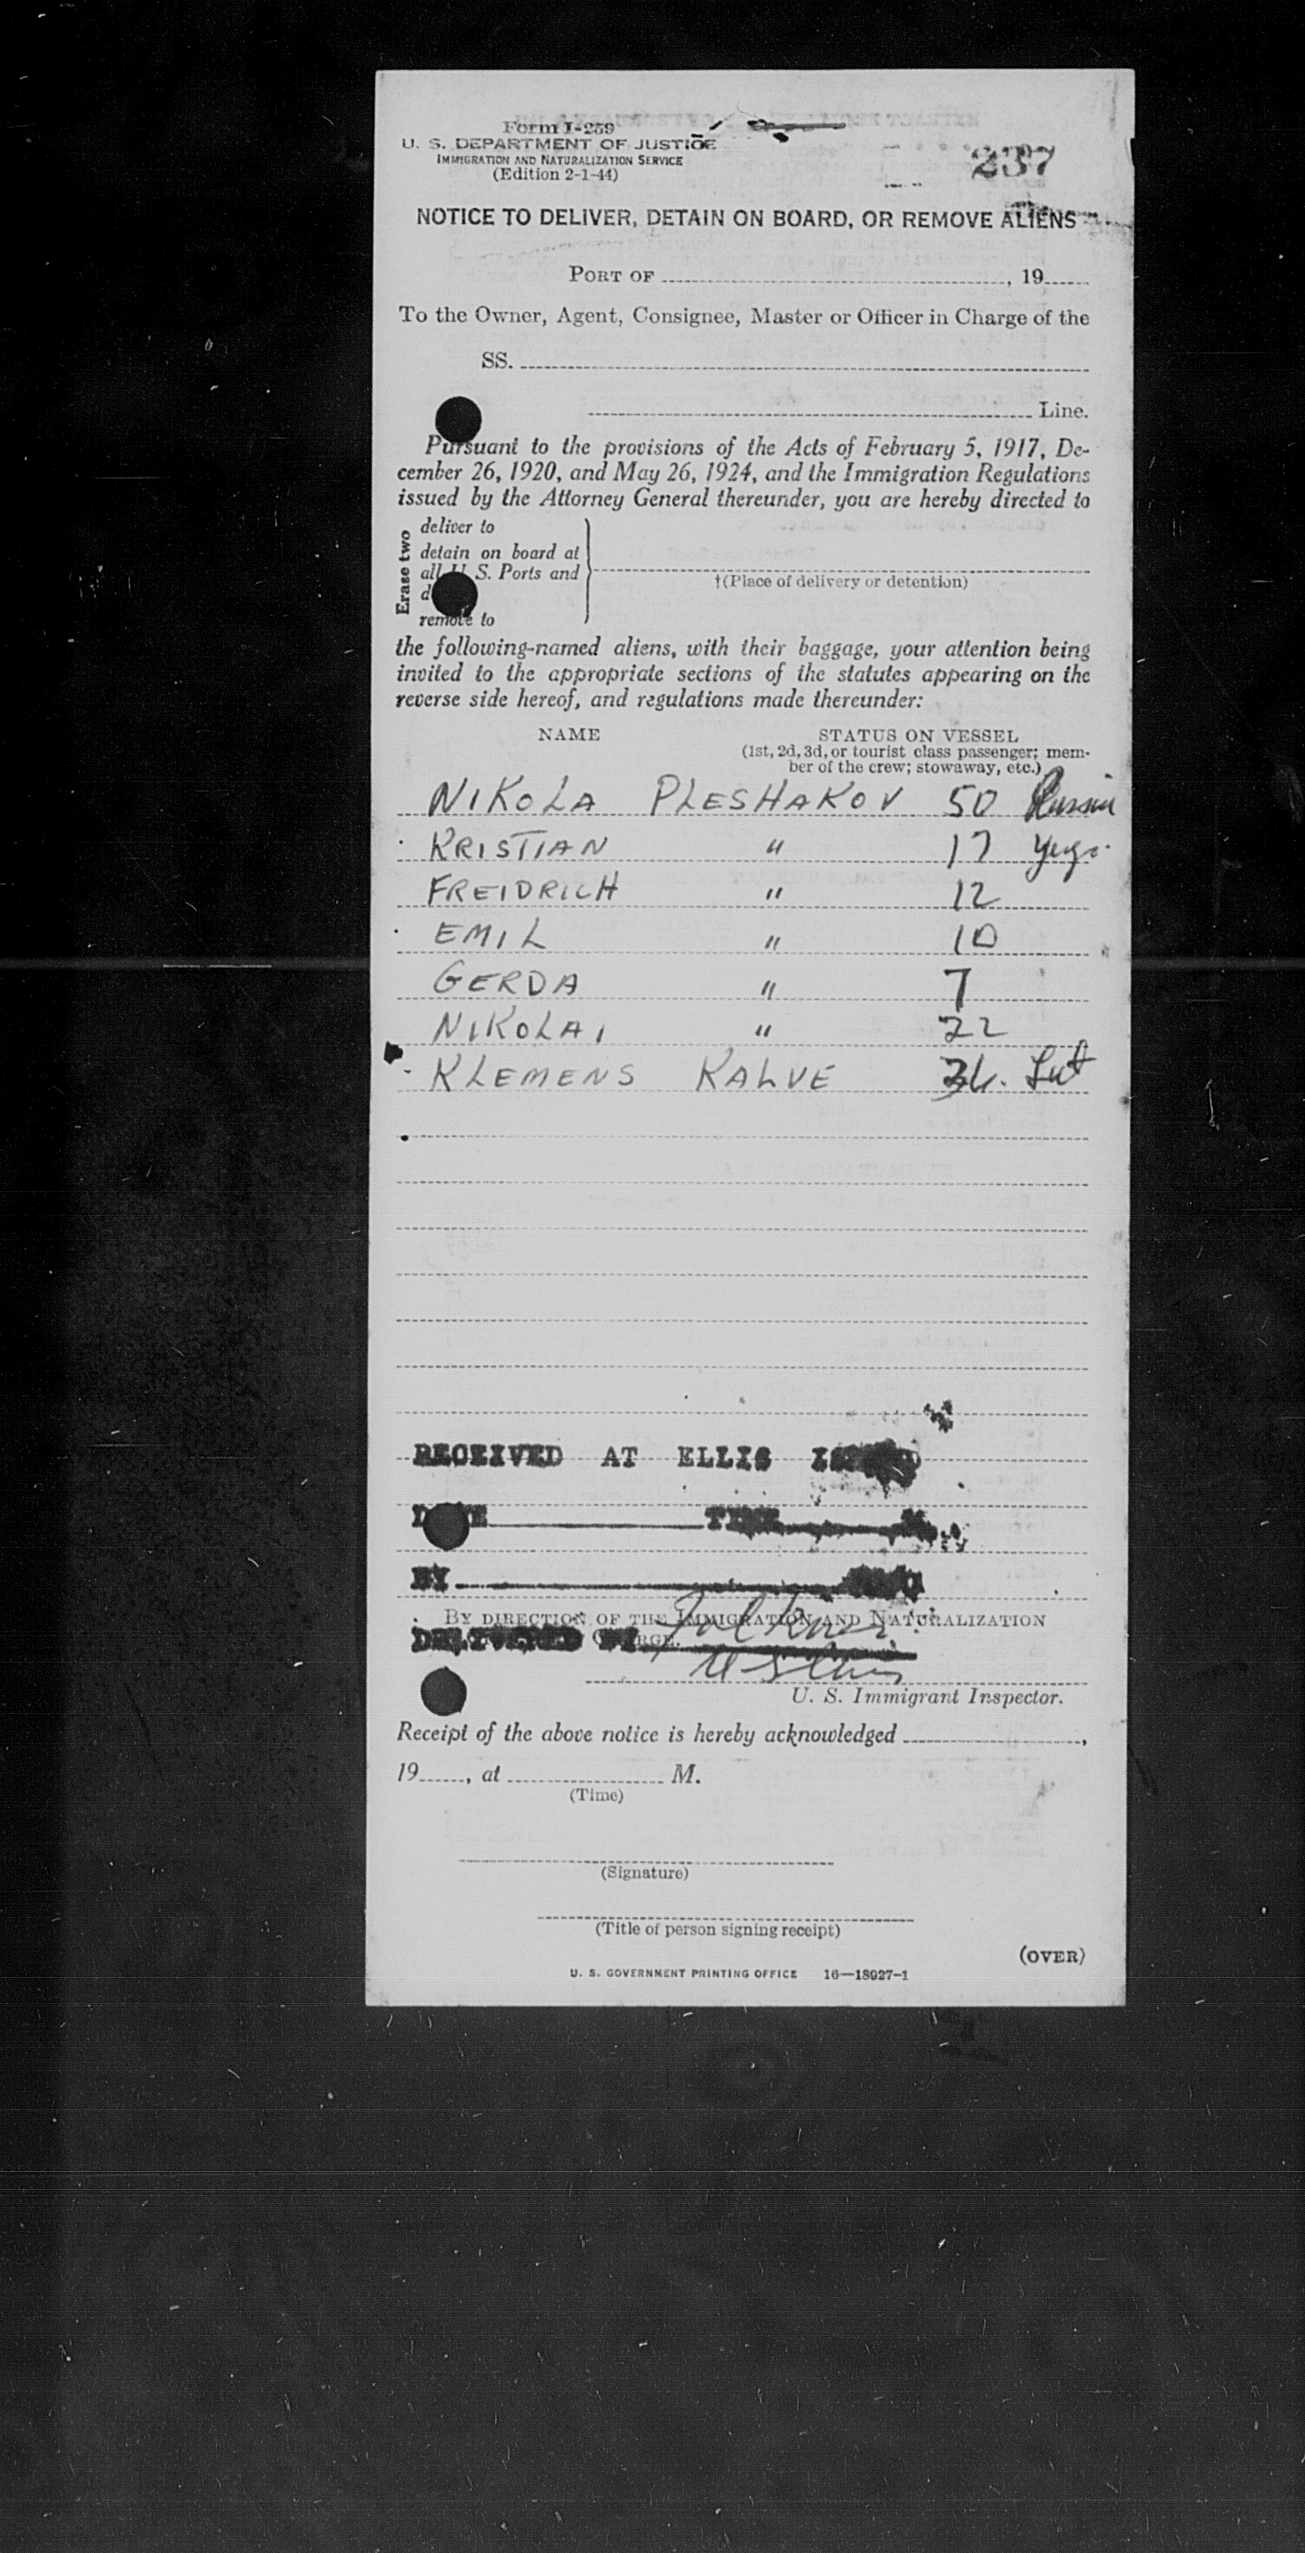 Form I-259
U. S. DEPARTMENT OF JUSTICE
IMMIGRATION AND NATURALIZATION SERVICE
(Edition 2-1-44)
237
NOTICE TO DELIVER, DETAIN ON BOARD, OR REMOVE ALIENS
PORT OF , 19
To the Owner, Agent, Consignee, Master or Officer in Charge of the
SS.
Line.
Pursuant to the provisions of the Acts of February 5, 1917, De-
cember 26, 1920, and May 26, 1924, and the Immigration Regulations
issued by the Attorney General thereunder, you are hereby directed to
Erase two
deliver to
detain on board at
all U. S. Ports and
remove to
†(Place of delivery or detention)
the following-named aliens, with their baggage, your attention being
invited to the appropriate sections of the statutes appearing on the
reverse side hereof, and regulations made thereunder:
NAME STATUS ON VESSEL
(1st, 2d, 3d, or tourist class passenger; mem-
ber of the crew; stowaway, etc.)
NIKOLA PLESHAKOV 50 Russia
KRISTIAN " 17 Yugo.
FREIDRICH " 12
EMIL " 10
GERDA " 7
NIKOLAI " 22
KLEMENS KALVE
RECEIVED AT ELLIS ISLAND
DATE TIME
BY
BY DIRECTION OF THE IMMIGRATION AND NATURALIZATION
DELIVERED BY
U. S. Immigrant Inspector.
Receipt of the above notice is hereby acknowledged ,
19 , at M.
(Time)
(Signature)
(Title of person signing receipt)
(OVER)
U. S. GOVERNMENT PRINTING OFFICE 16—18927-1